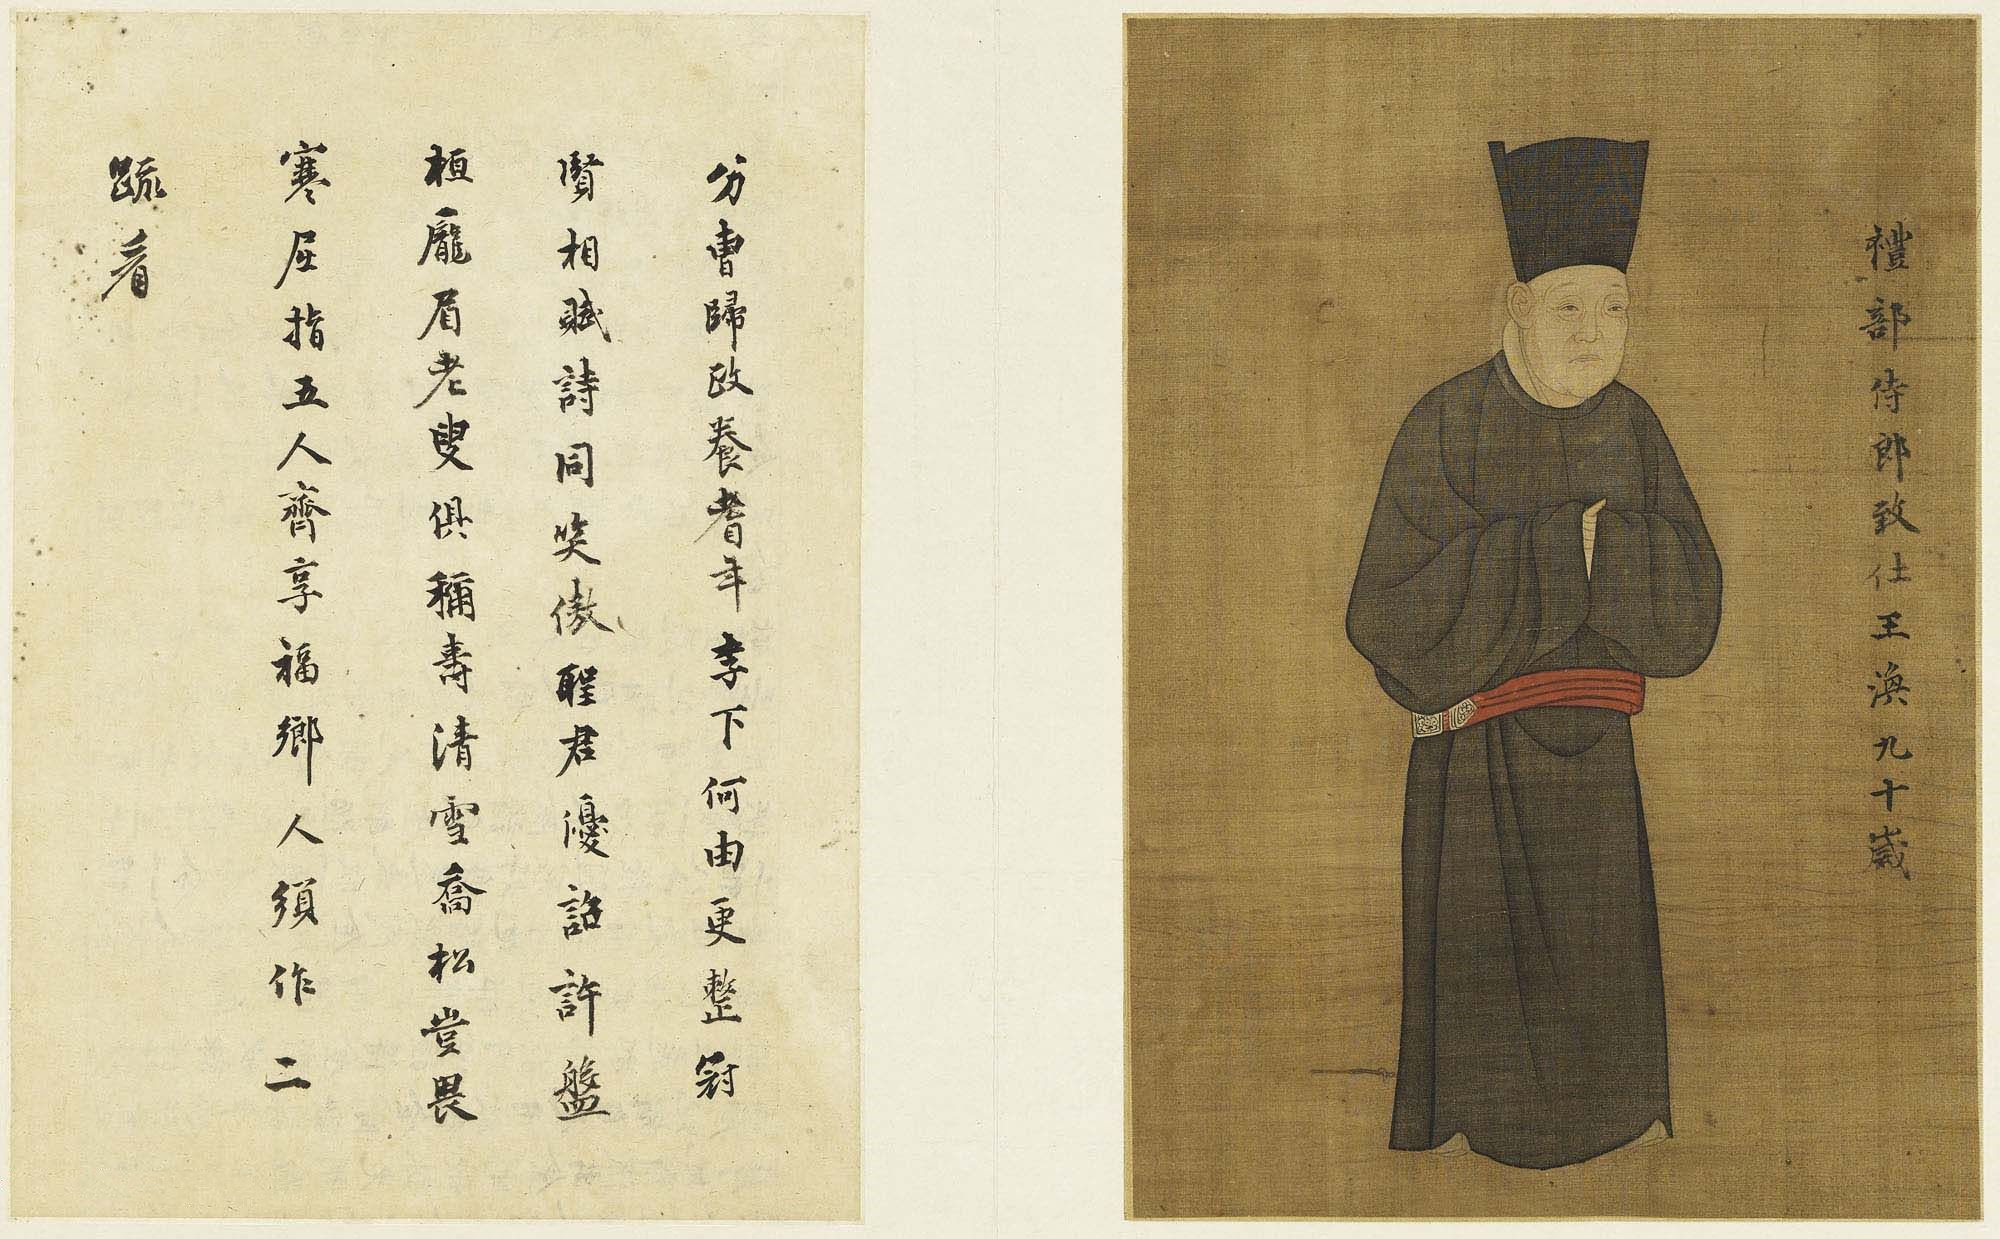 禮部侍郎致仕王渙九十歲
分曹歸政養耆年李下何由更整冠
賢相賦詩同笑傲聖君優詔許盤
桓龐眉老叟俱稱壽清雪喬松豈畏
寒屈指五人齊享福鄉人須作二
䟽看